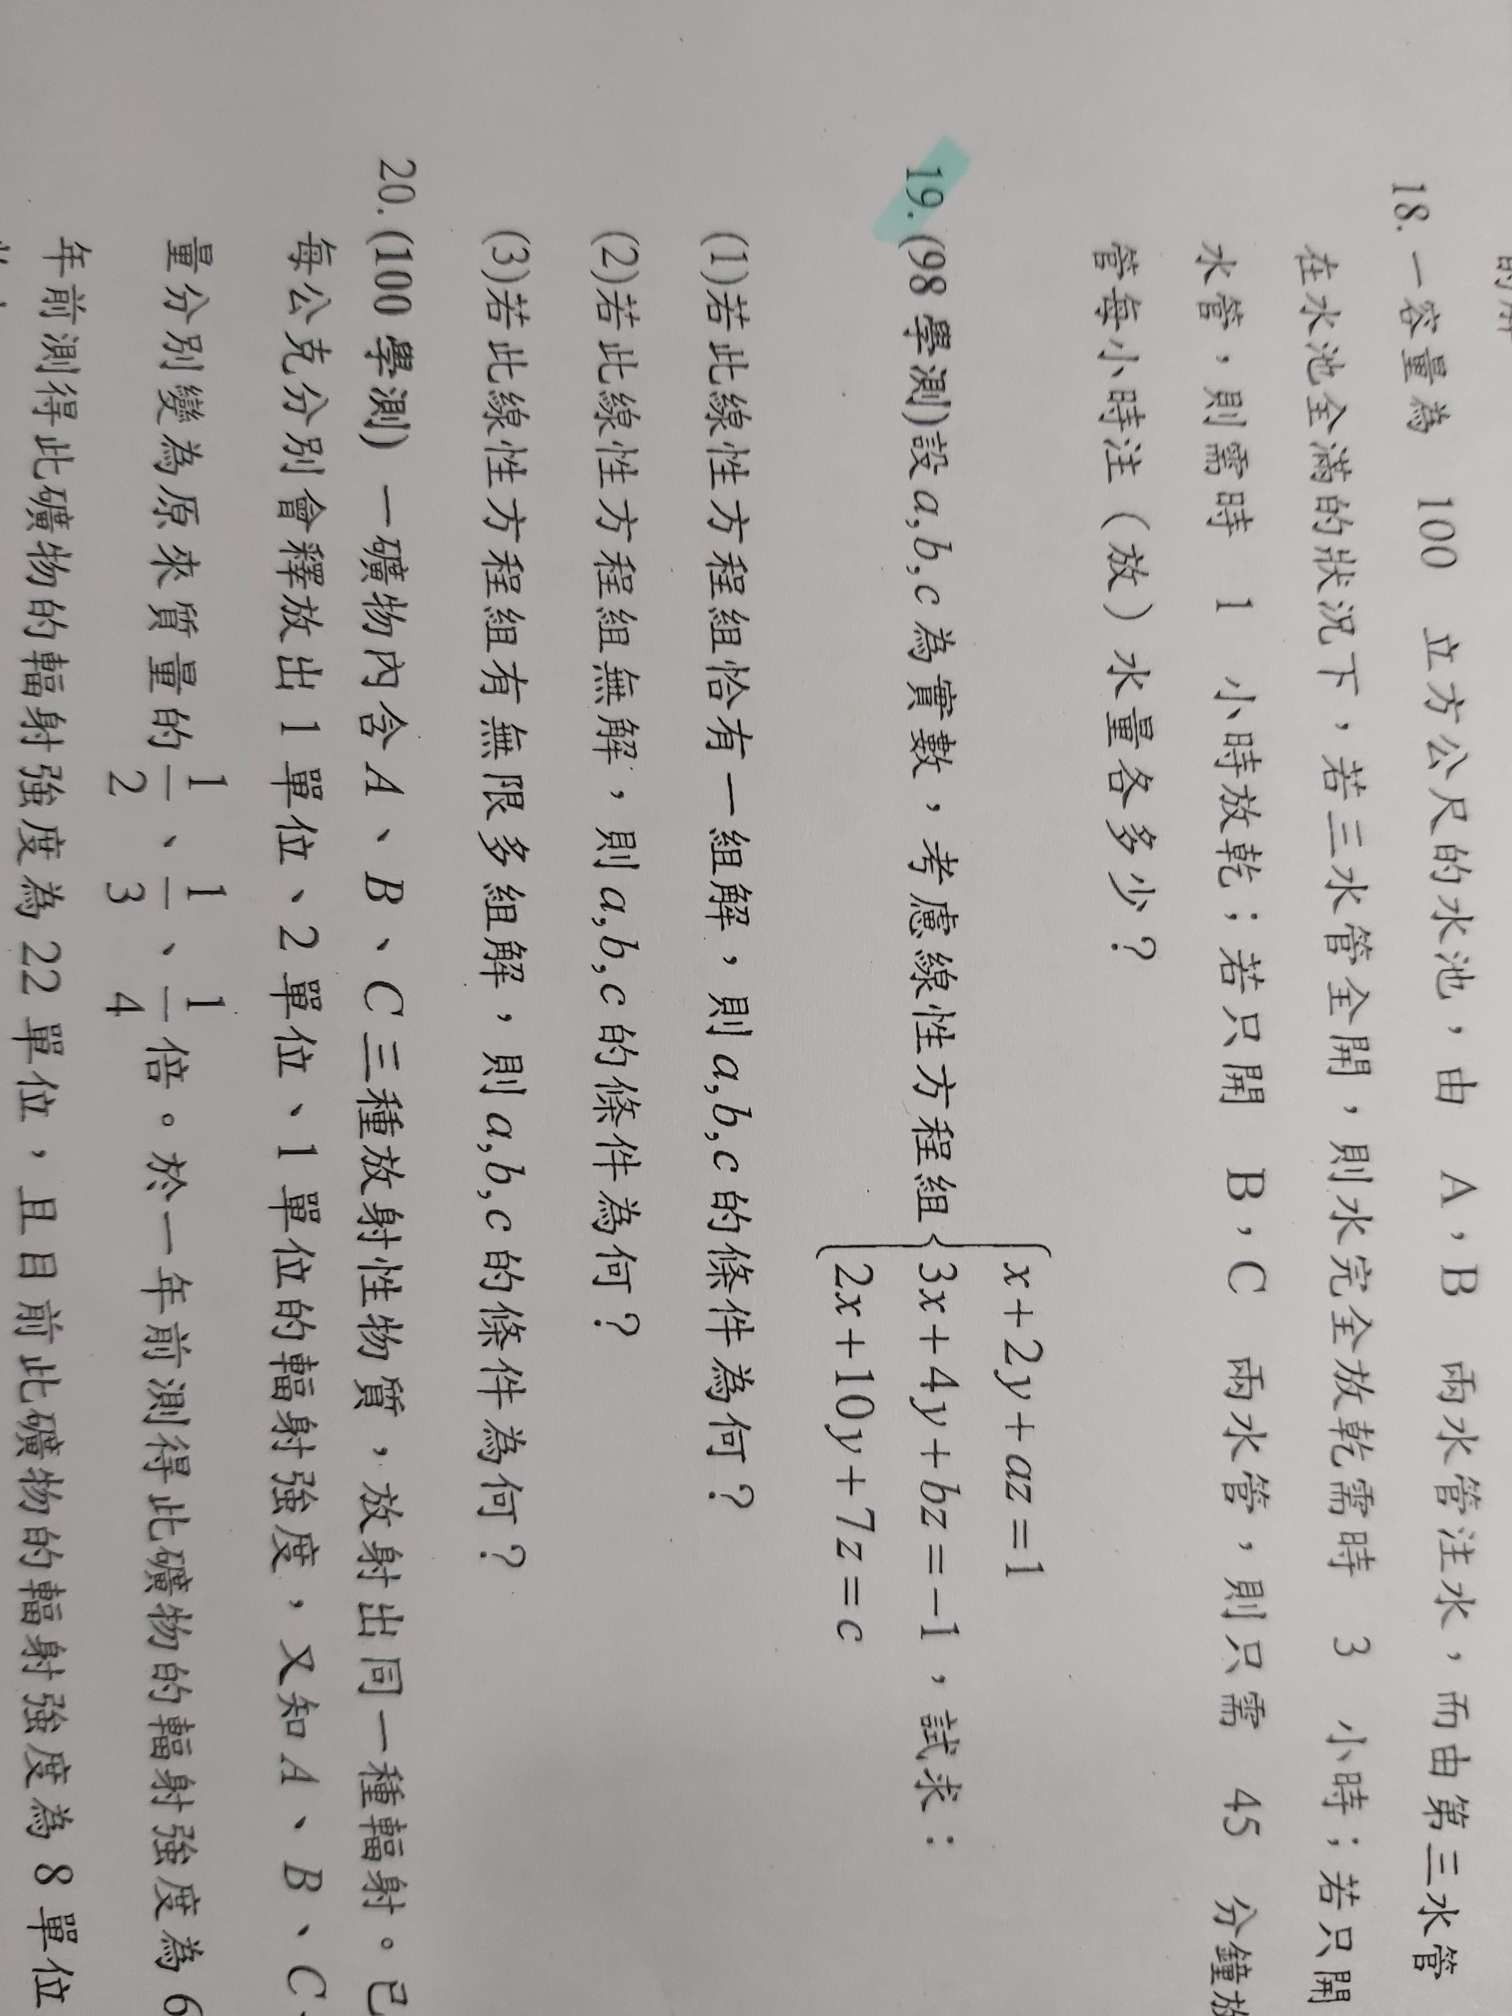 18. 一容量為 100 立方公尺的水池，由 A，B 兩水管注水，而由第三水管
在水池全滿的狀況下，若三水管全開，則水完全放乾需時 3 小時；若只開
水管，則需時 1 小時放乾；若只開 B，C 兩水管，則只需 45 分鐘放
管每小時注（放）水量各多少？
19.(98 學測)設a,b,c為實數，考慮線性方程組{x+2y+az=1
3x+4y+bz=-1，試求：
2x+10y+7z=c
(1)若此線性方程組恰有一組解，則a,b,c的條件為何？
(2)若此線性方程組無解，則a,b,c的條件為何？
(3)若此線性方程組有無限多組解，則a,b,c的條件為何？
20.(100 學測) 一礦物內含A、B、C三種放射性物質，放射出同一種輻射。已
每公克分別會釋放出1單位、2單位、1單位的輻射強度，又知A、B、C
量分別變為原來質量的1/2、1/3、1/4倍。於一年前測得此礦物的輻射強度為6
年前測得此礦物的輻射強度為22單位，且目前此礦物的輻射強度為8單位